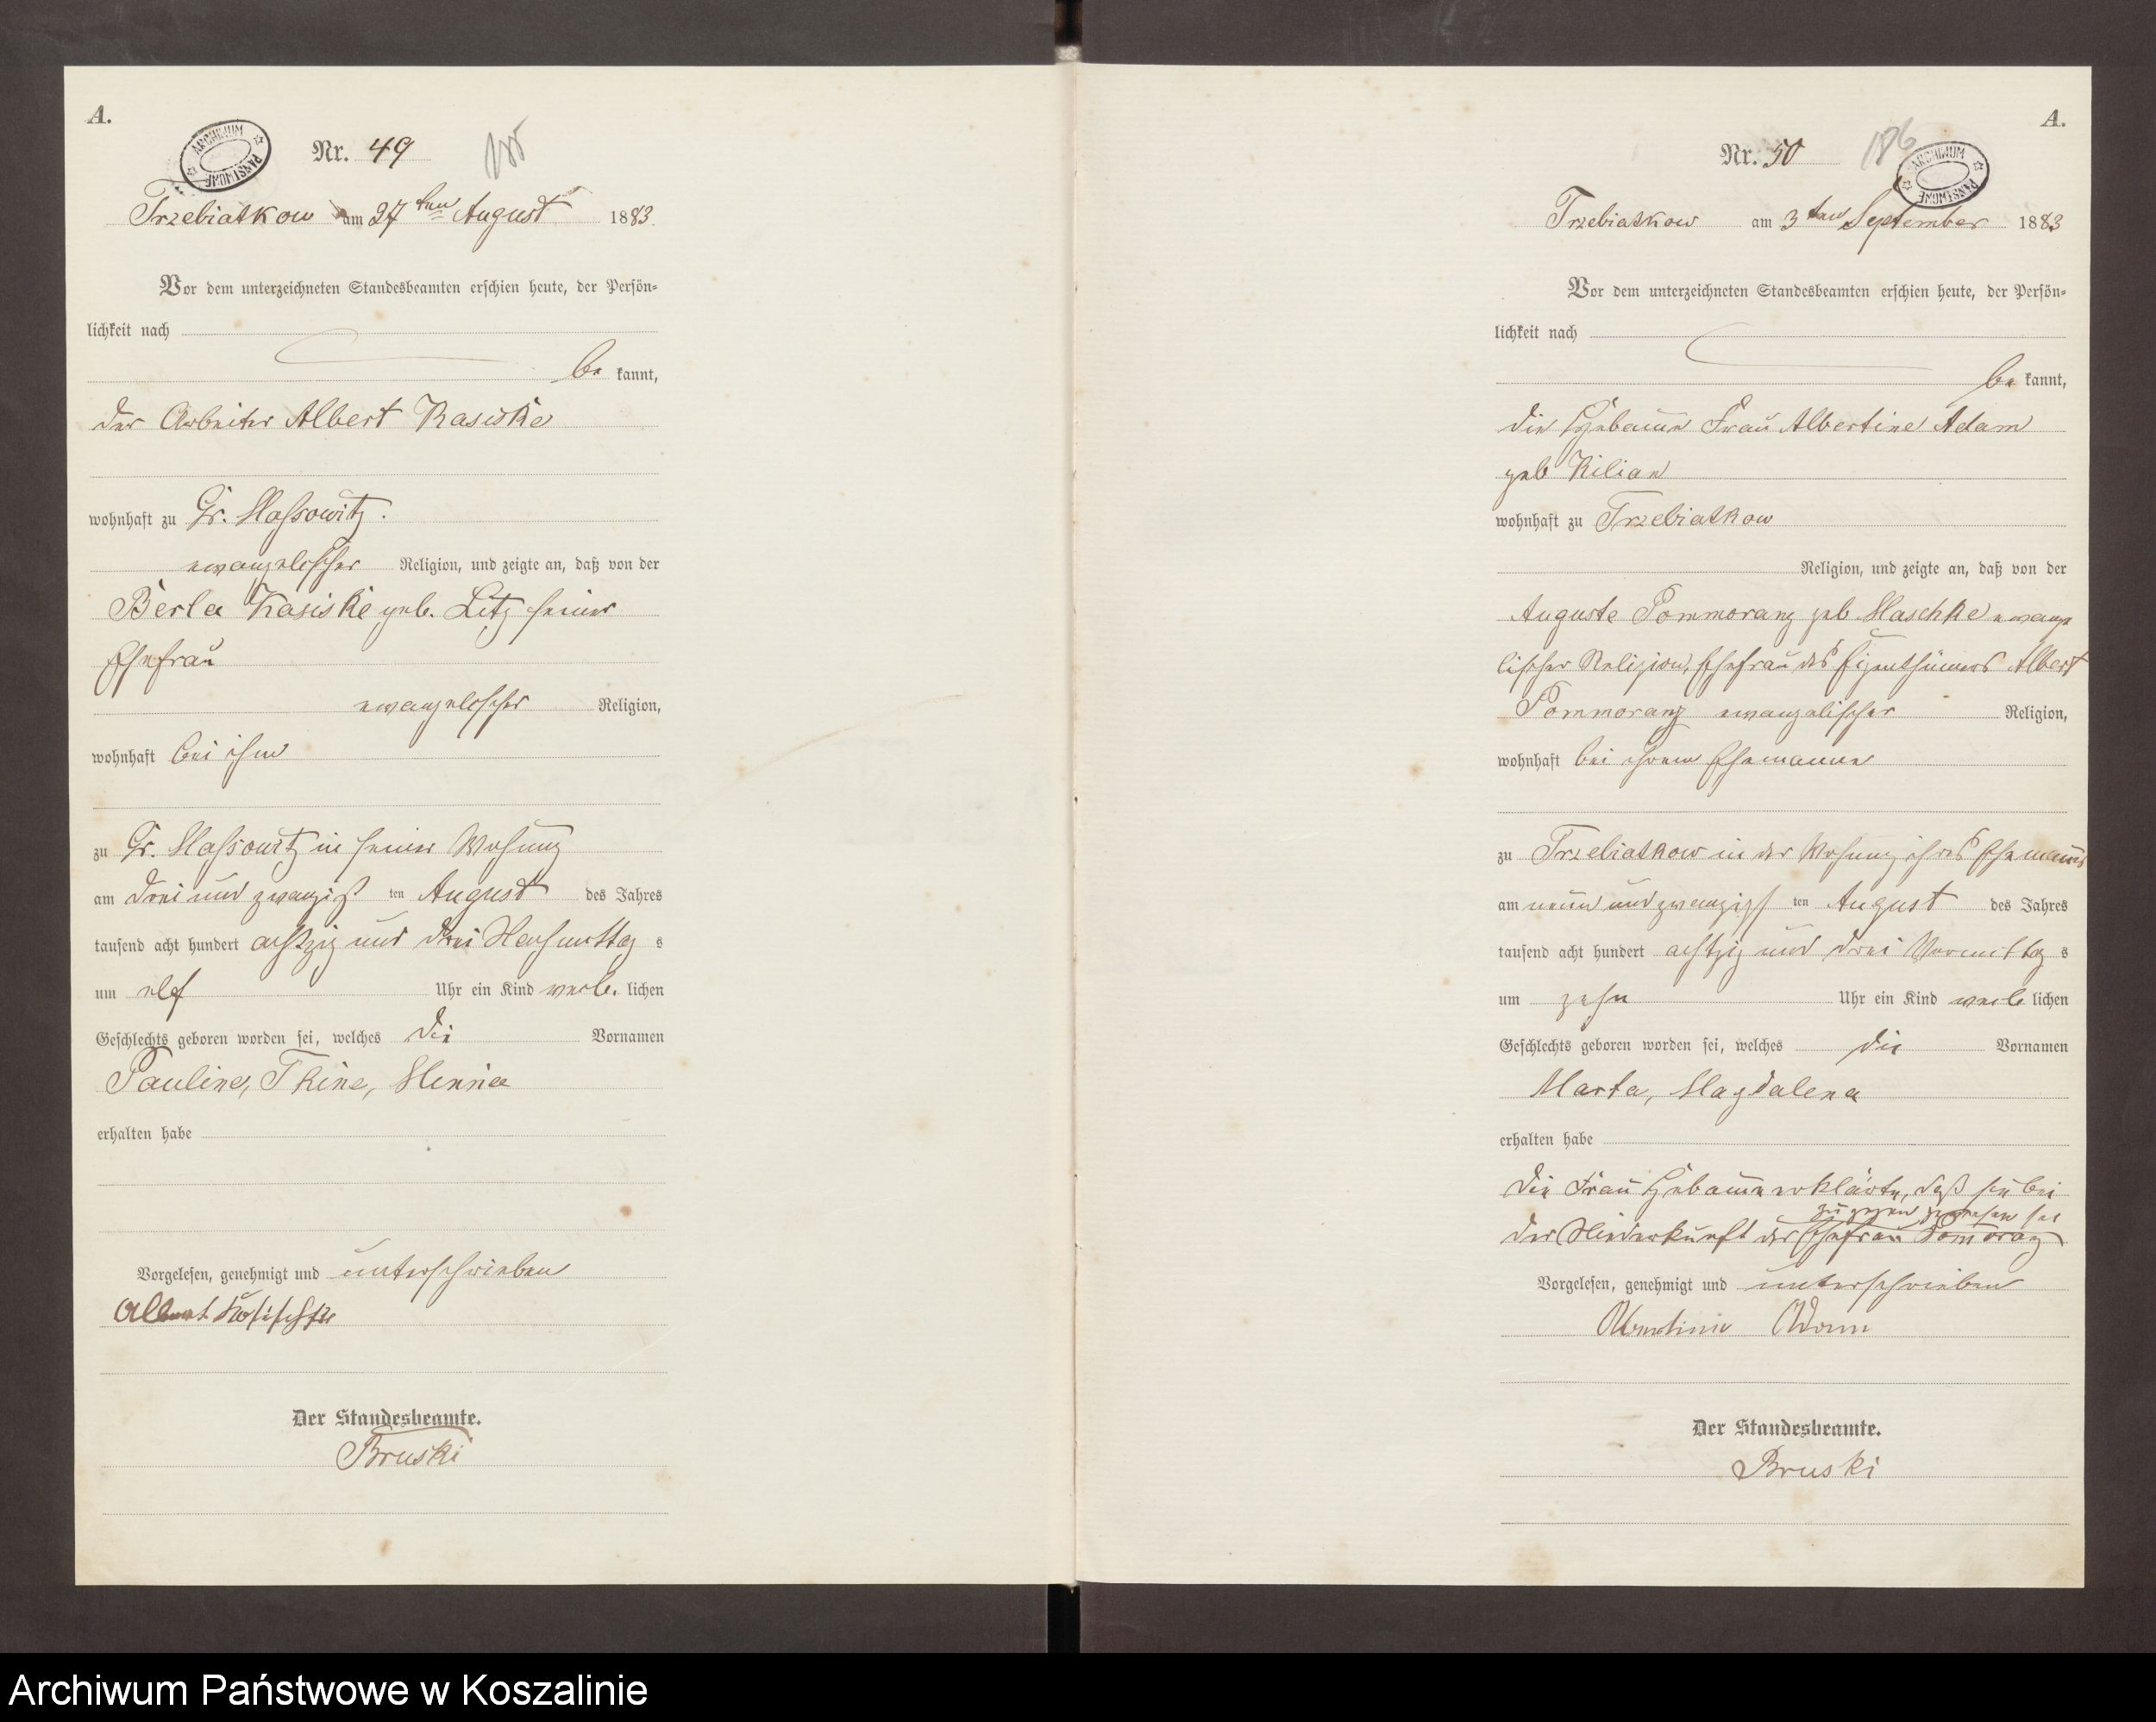 A.
ARCHIWUM PAŃSTWOWE
Nr. 49
Trzebiatkow am 27ten August 1883.
Vor dem unterzeichneten Standesbeamten erschien heute, der Persön-
lichkeit nach
be kannt,
der Arbeiter Albert Kasiske
wohnhaft zu Gr. Massowitz.
ewangelischer Religion, und zeigte an, daß von der
Berta Kasiske geb. Litz seiner
Ehefrau
ewangelischer Religion,
wohnhaft bei ihm
zu Gr. Massowitz in seiner Wohung
am drei und zwanzigst ten August des Jahres
tausend acht hundert achtzig und drei Nachmittag s
um elf Uhr ein Kind weib. lichen
Geschlechts geboren worden sei, welches die Vornamen
Pauline, Thine, Minna
erhalten habe
Vorgelesen, genehmigt und unterschrieben
Albert
Der Standesbeamte.
Bruski
A.
186
ARCHIWUM PAŃSTWOWE
Nr. 50
Trzebiatkow am 3ten September 1883
Vor dem unterzeichneten Standesbeamten erschien heute, der Persön-
lichkeit nach
be kannt,
die Hebamme Frau Albertine Adam
geb Kilian
wohnhaft zu Trzebiatkow
Religion, und zeigte an, daß von der
Auguste Pommorang geb Maschke ewange
lischer Religion, Ehefrau des Eigenthümers Albert
Pommorang ewangelischer Religion,
wohnhaft bei ihrem Ehemanne
zu Trzebiatkow in der Wohung ihres Ehemanns
am neun und zwanzigst ten August des Jahres
tausend acht hundert achtzig und drei Vormittag s
um zehn Uhr ein Kind weib lichen
Geschlechts geboren worden sei, welches die Vornamen
Marta, Magdalena
erhalten habe
Die Frau Hebamme erklärte, daß sie bei
zugegen gewesen sei
der Niederkunft der Ehefrau Pomorang
Vorgelesen, genehmigt und unterschrieben
Albertine Adam
Der Standesbeamte.
Bruski
Archiwum Państwowe w Koszalinie